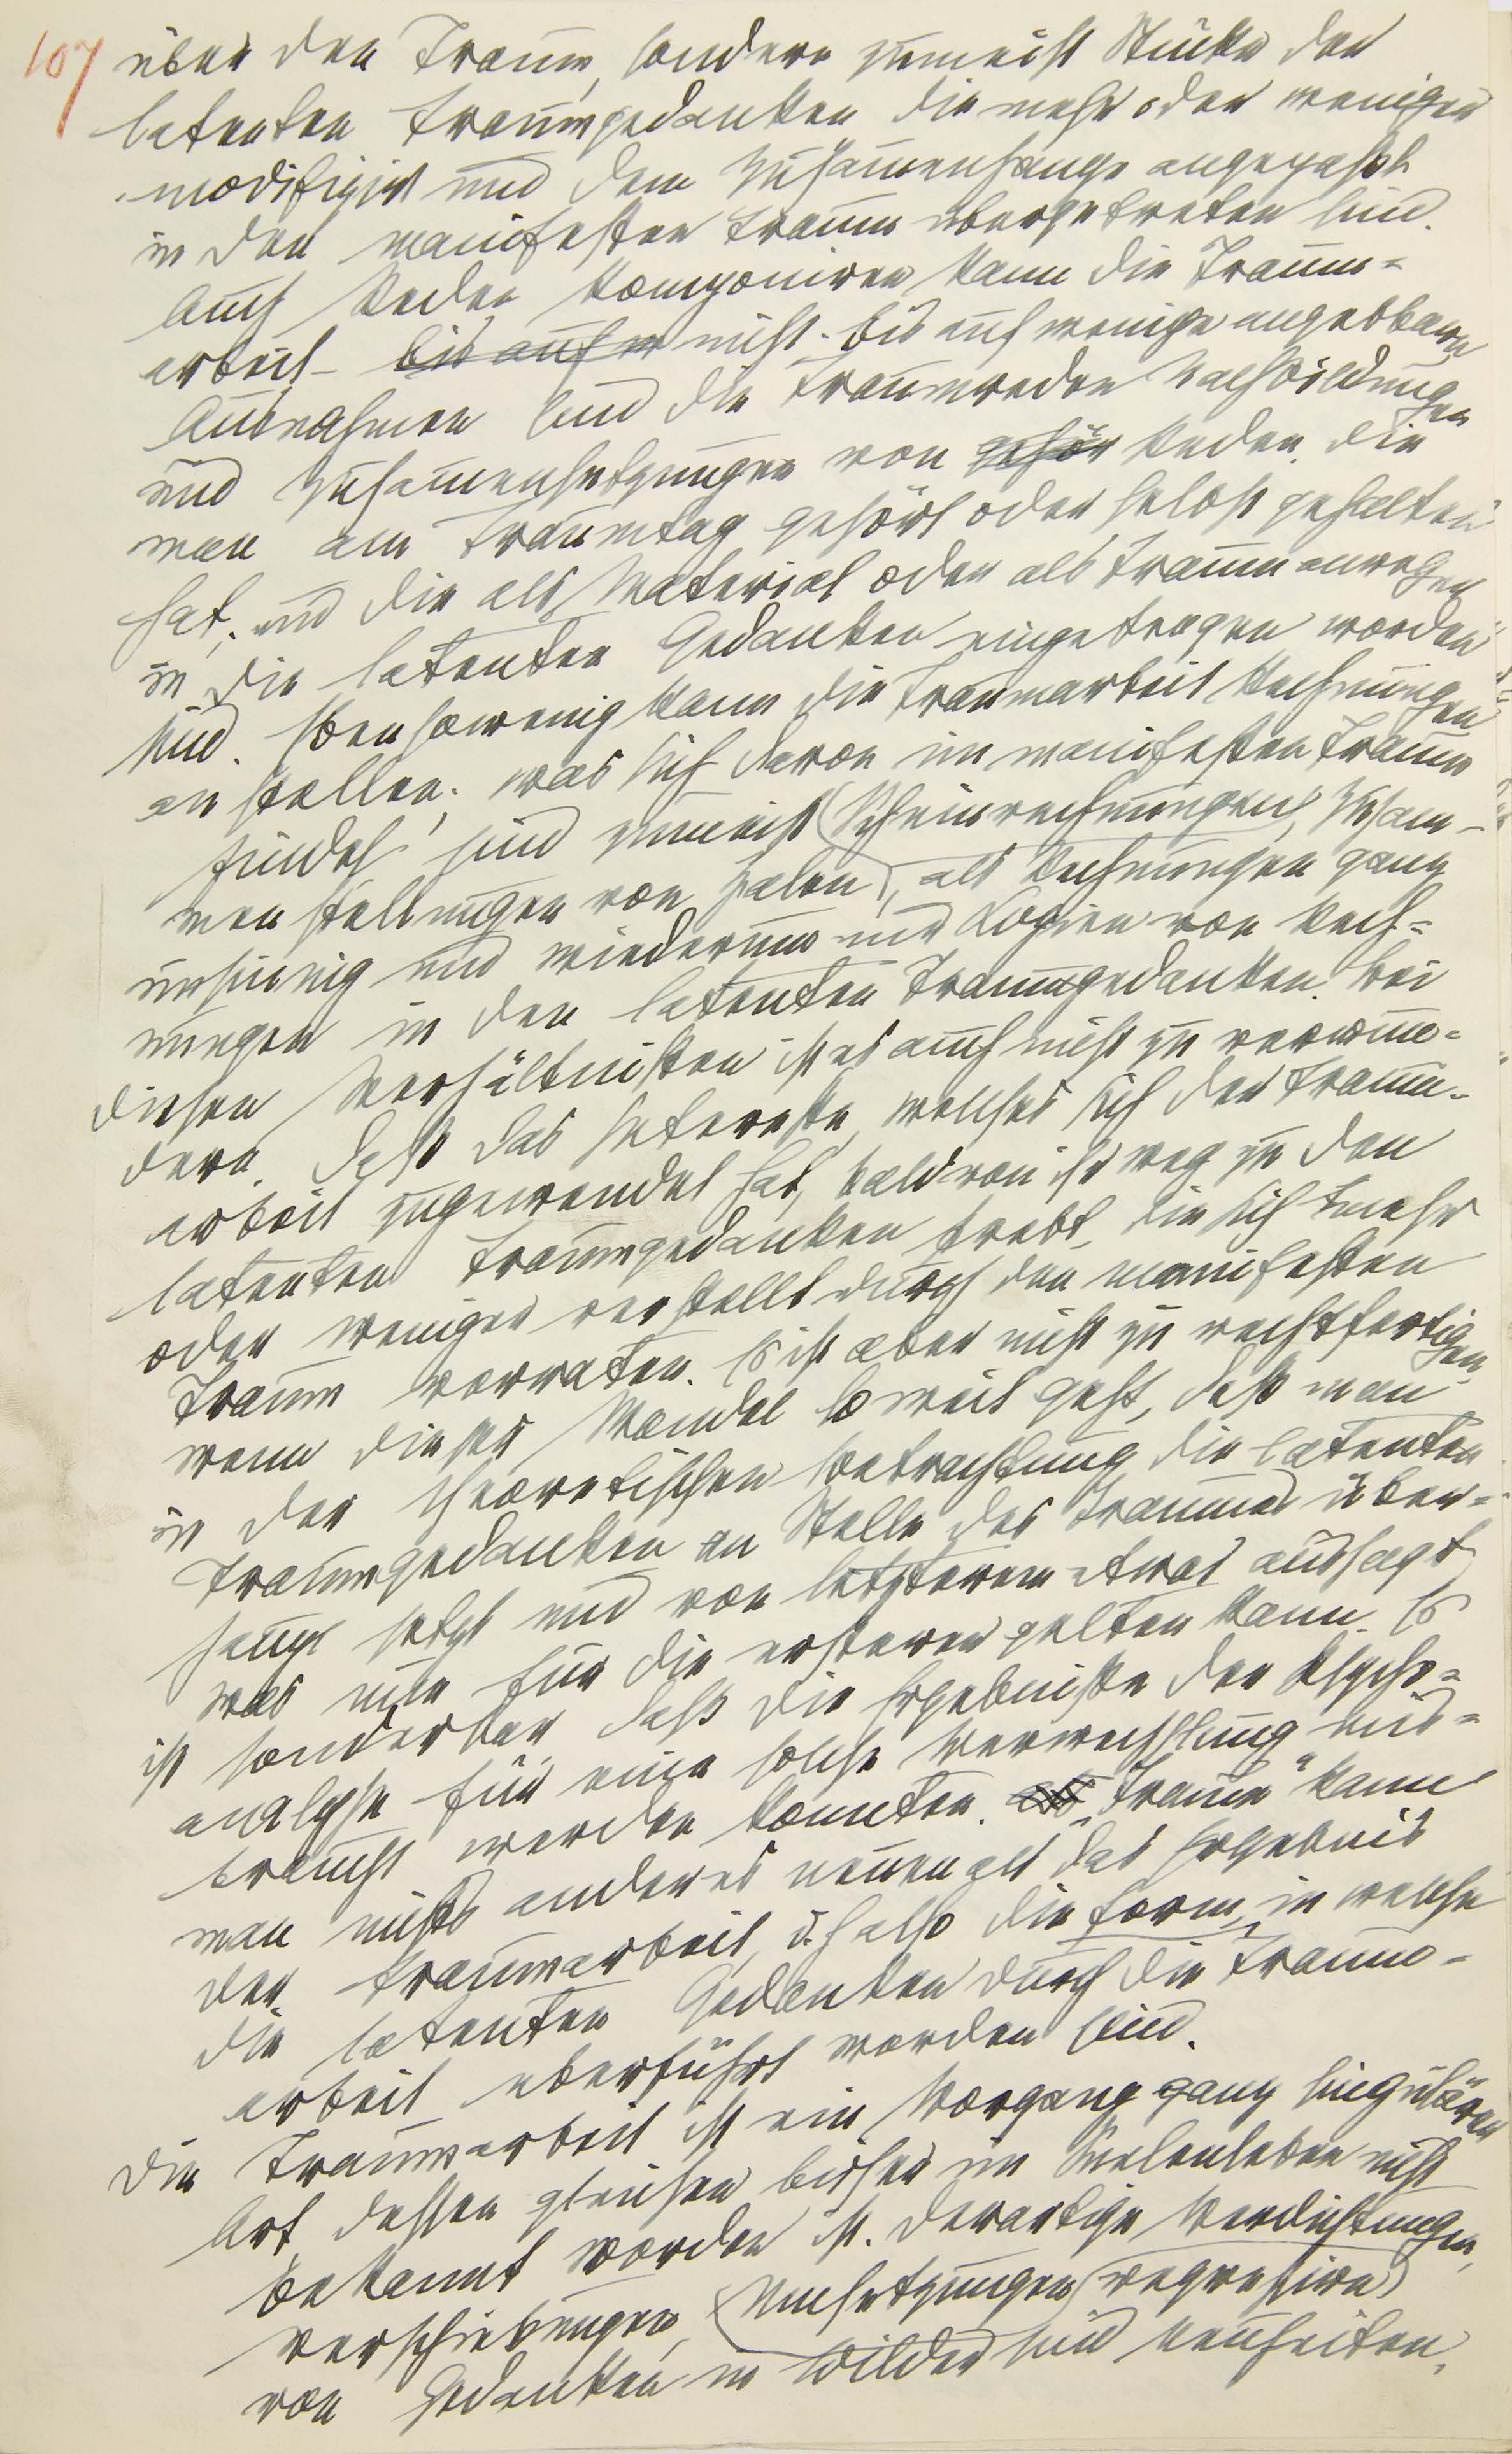 107
über den Traum, sondern zumeist Stücke der
latenten Traumgedanken die mehr oder weniger
modifizirt und dem Zusammenhange angepaßt
in den manifesten Traum übergetreten sind.
Auch Reden komponiren kann die Traum-
arbeit bis auf w nicht. Bis auf wenige angebbare
Ausnahmen sind die Traumreden Nachbildungen
und Zusammensetzungen von gehör Reden, die
man am Traumtag gehört oder selbst gehalten
hat, und die als Material oder als Traumanreger
in die latenten Gedanken eingetragen worden
sind. Ebensowenig kann die Traumarbeit Rechnungen
anstellen; was sich davon im manifesten Traum
findet, sind zumeist (Scheinrechnungen), Zusam-
menstellungen von Zalen, als Rechnungen ganz
unsinnig und wiederum nur Kopien von Rech-
nungen in den latenten Traumgedanken. Bei
diesen Verhältnißen ist es auch nicht zu verwun-
dern, daß das Intereße, welches sich der Traum-
arbeit zugewendet hat, bald von ihr weg zu den
latenten Traumgedanken strebt, die sich mehr
oder weniger verstellt durch den manifesten
Traum verraten. Es ist aber nicht zu rechtfertigen,
wenn dieser Wandel so weit geht, daß man
in der theoretischen Betrachtung die latenten
Traumgedanken an Stelle des Traumes über-
haupt setzt und von letzterem etwas aussagt,
was nur für die ersteren gelten kann. Es
ist sonderbar, daß die Ergebniße der Psycho-
analyse für eine solche Verwechslung miß-
braucht werden konnten. „Traum“ kann
man nichts anderes nennen als das Ergebnis
der Traumarbeit, d. h also die Form, in welche
die latenten Gedanken durch die Traum-
arbeit überführt worden sind.
Die Traumarbeit ist ein Vorgang ganz singulärer
Art, dessen gleichen bisher im Seelenleben nicht
bekannt worden ist. Derartige Verdichtungen,
Verschiebungen, (Umsetzungen) regreßive
von Gedanken in Bilder sind Neuheiten,